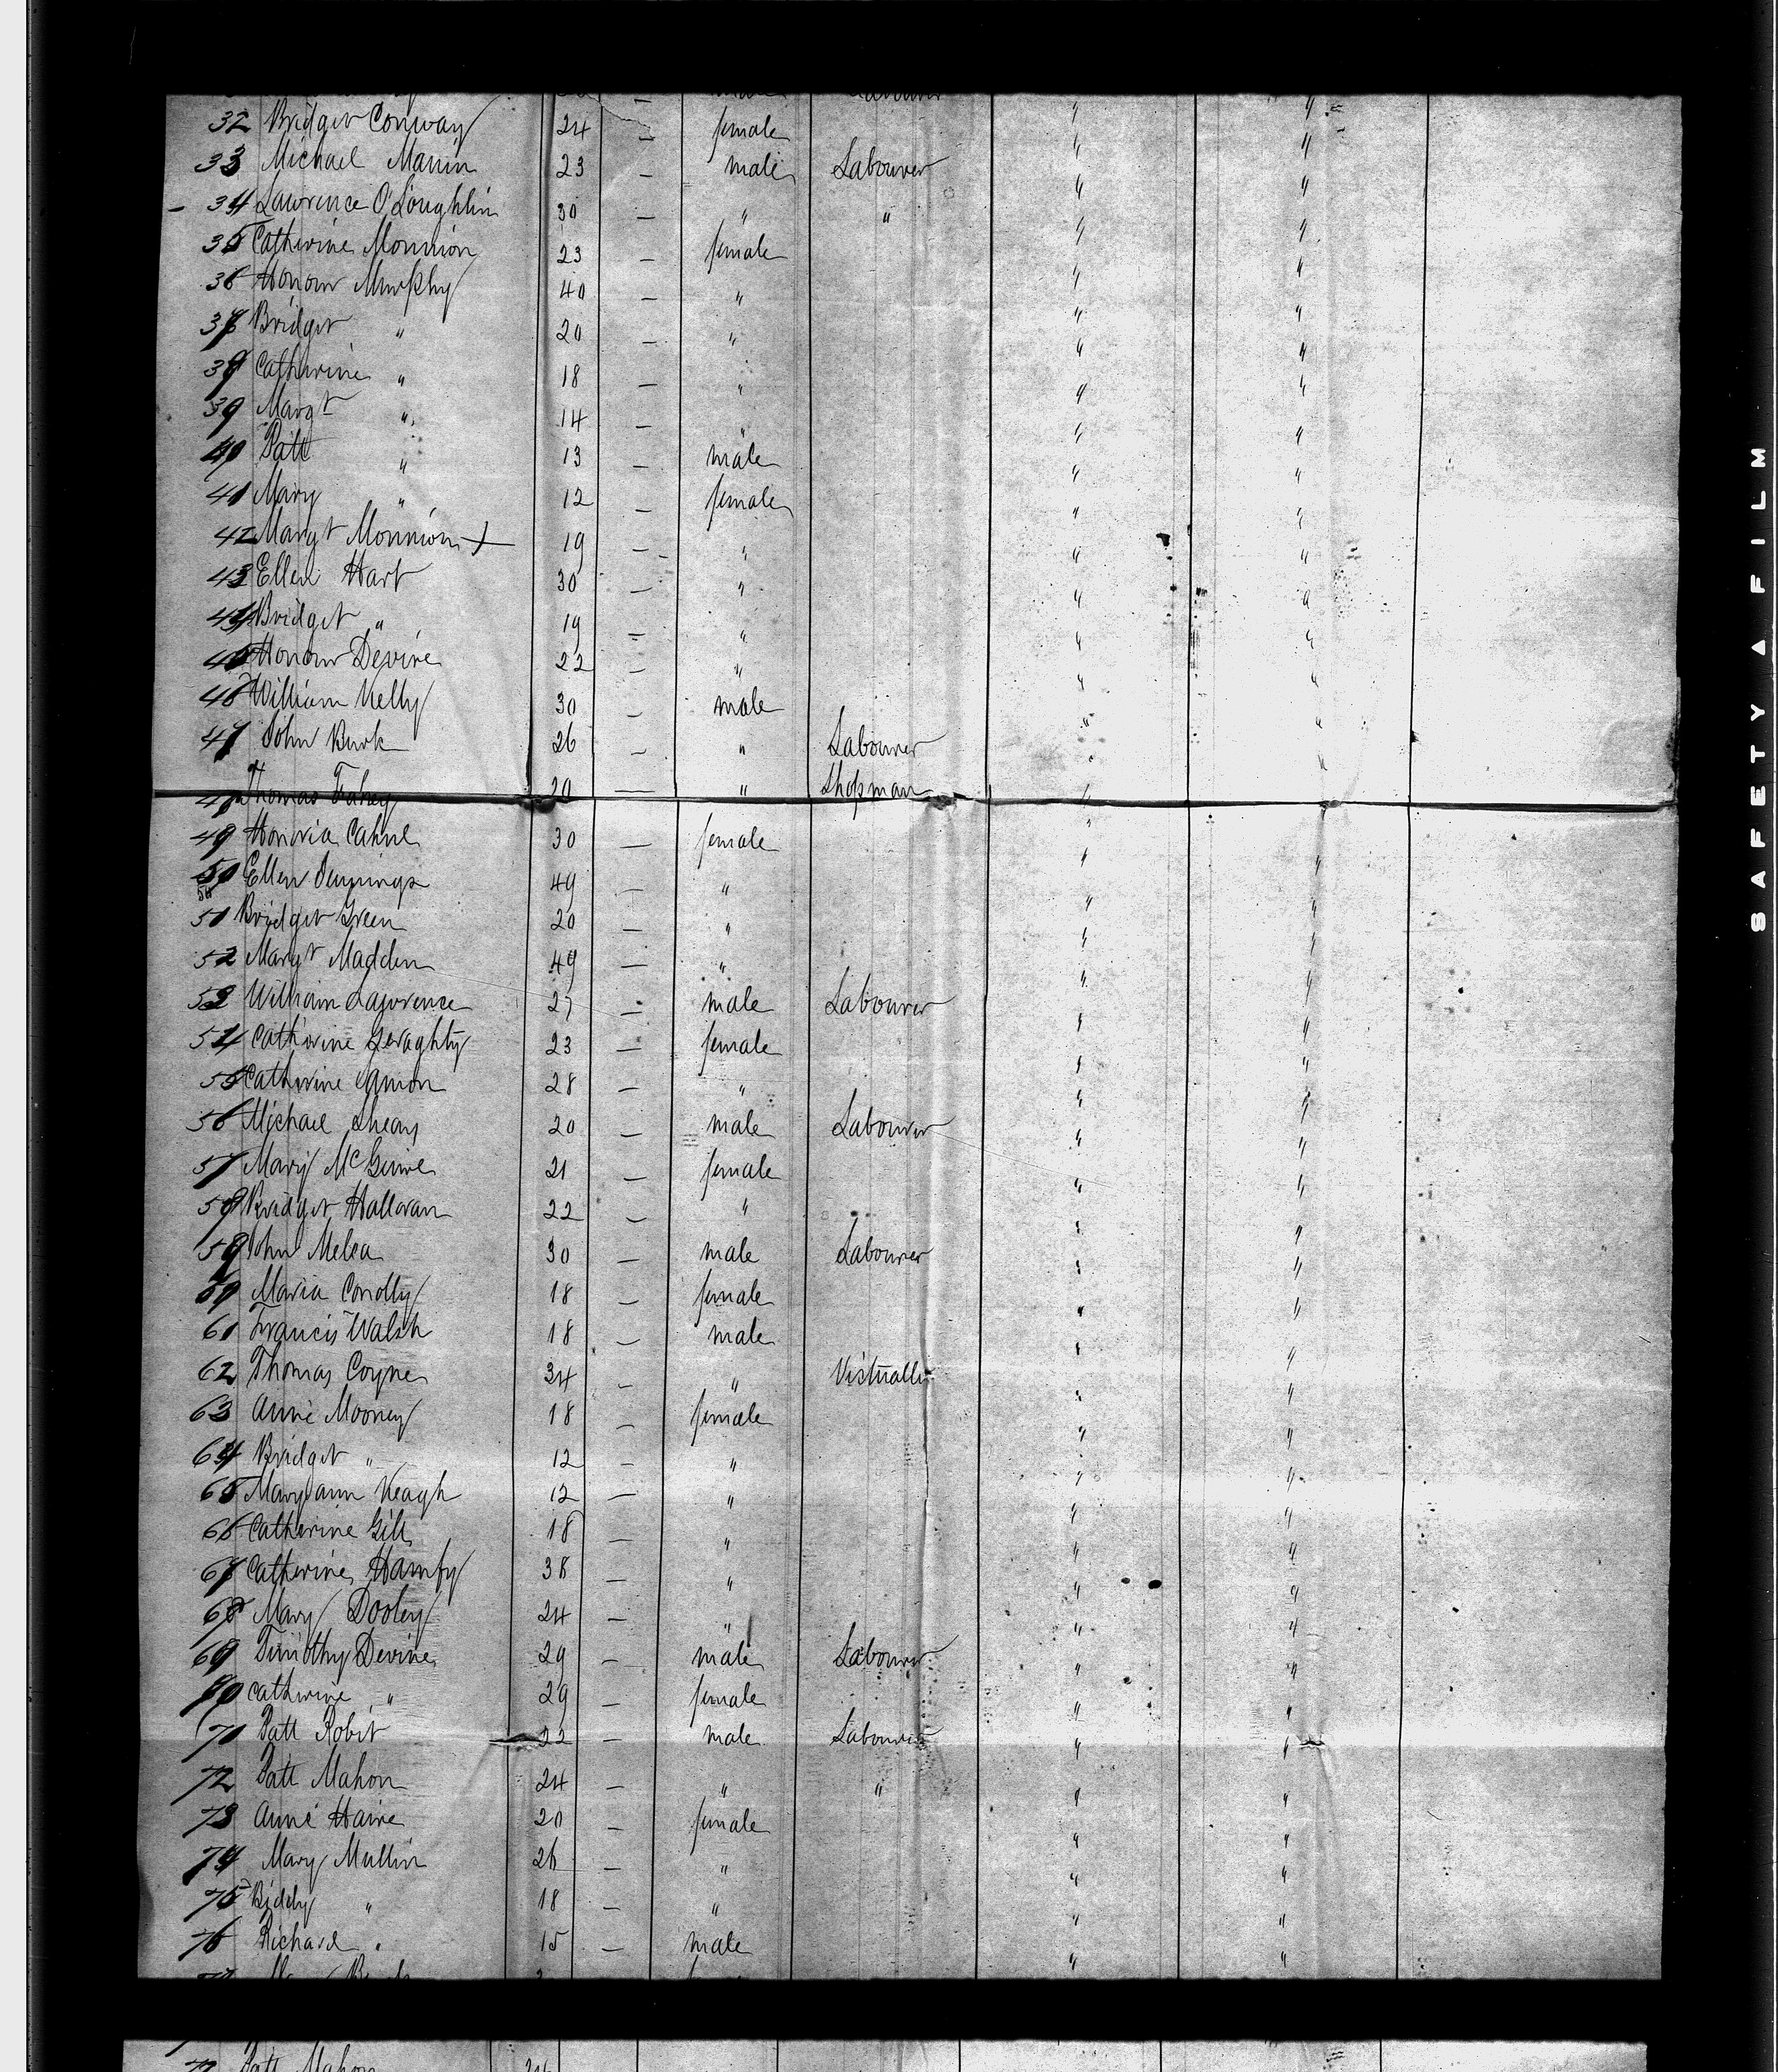 32 Bridget Conway 24 — female " "
33 Michael Manin 23 — male Labourer " "
34 Lawrence O'Loughlin 30 — " " " "
35 Catherine Monnion 23 — female " "
36 Honour Murphy 40 — " " "
37 Bridget " 20 — " " "
38 Catherine " 18 — " " "
39 Margt " 14 — " " "
40 Patt " 13 — male " "
41 Mary " 12 — female " "
42 Margt Monnion 19 — " " "
43 Ellen Hart 30 — " " "
44 Bridget " 19 — " " "
45 Honour Devine 22 — " " "
46 William Kelly 30 — male " "
47 John Burk 26 — " Labourer " "
48 Thomas Fahey 20 — " Shopman " "
49 Honoria Cahill 30 — female " "
50 Ellen Jennings 49 — " " "
51 Bridget Green 20 — " " "
52 Margt Madden 49 — " " "
53 William Lawrence 27 — male Labourer " "
54 Catherine Geraghty 23 — female " "
55 Catherine 28 — " " "
56 Michael Sheay 20 — male Labourer " "
57 Mary McGuire 21 — female " "
58 Bridget Halloran 22 — " " "
59 John Melea 30 — male Labourer " "
60 Maria Conolly 18 — female " "
61 Francis Walsh 18 — male " "
62 Thomas Coyne 34 — " " "
63 Anne Mooney 18 — female " "
64 Bridget " 12 — " " "
65 Maryann Keagh 12 — " " "
66 Catherine Gill 18 — " " "
67 Catherine 38 — " " "
68 Mary Dooley 24 — " " "
69 Timothy Devine 29 — male Labourer " "
70 Catherine " 29 — female " "
71 Patt Robit 22 — male Labourer " "
72 Patt Mahon 24 — " " " "
73 Anne Haire 20 — female " "
74 Mary Mullin 26 — " " "
75 Biddy " 18 — " " "
76 Richard " 15 — male " "
Patt Mahon
SAFETY ▲ FILM